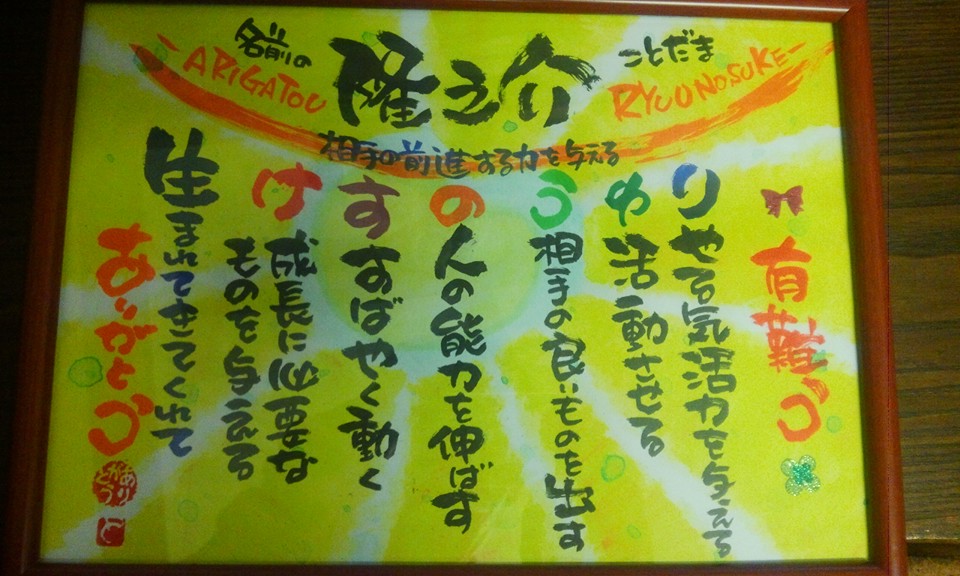 名前の
隆之介
ことだま
ARIGATOU
RYUUNOSUKE
相手の前進する力を与える
有難う
りやる気活力を与える
ゆ活動させる
う相手の良いものを出す
の人の能力を伸ばす
すすばやく動く
け成長に必要な
ものを与える
生まれてきてくれて
ありがとう
ありがとう